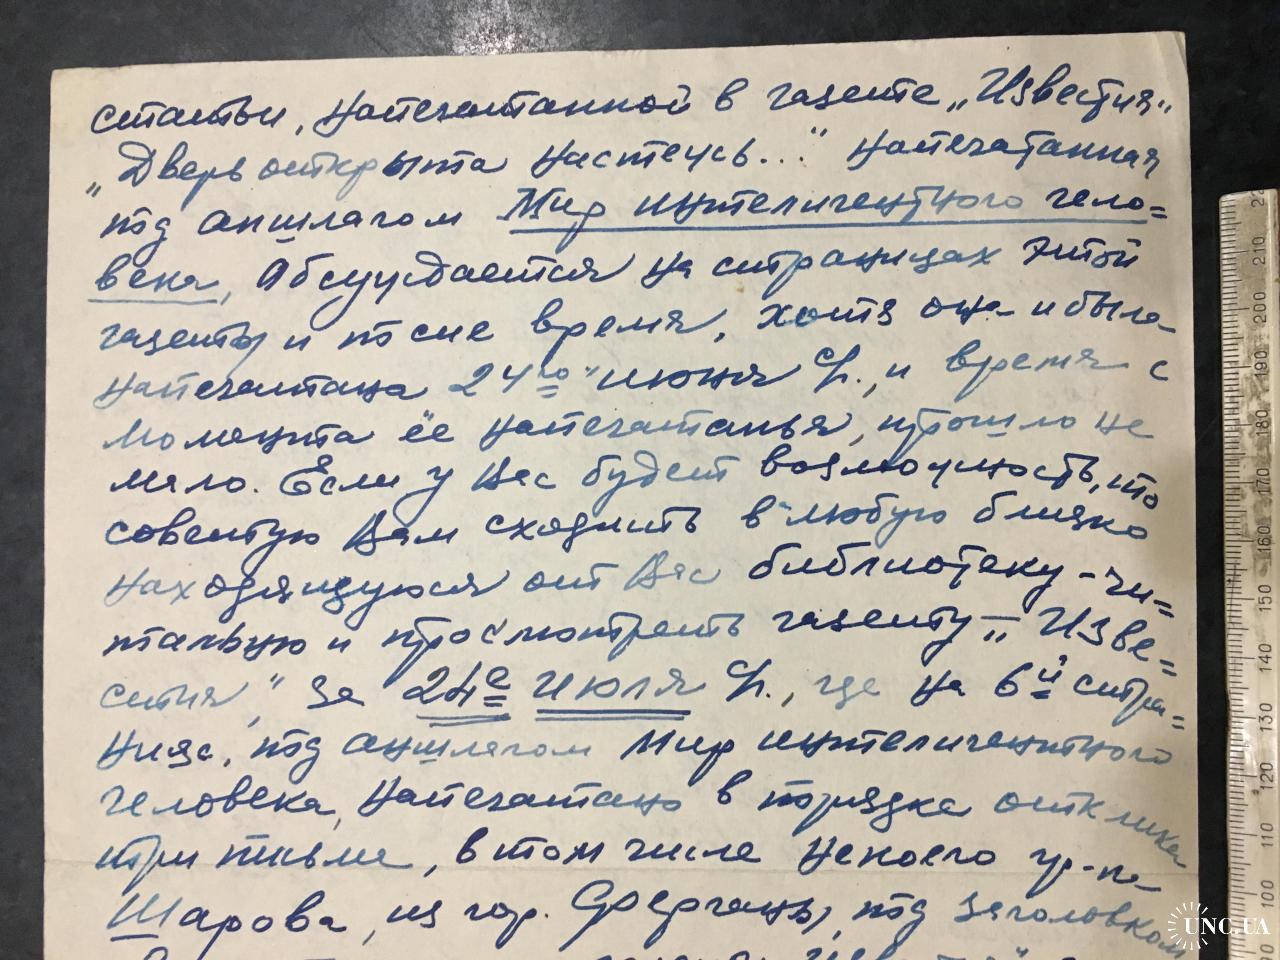 статьи, напечатанной в газете „Известия"
„Дверь открыта настежь..." напечатанная
под аншлагом Мир интелигентного чело=
века, Обсуждается на страницах этой
газеты и по сие время, хотя она и была
напечатана 24го июня с/г., и время с
момента её напечатанья, прошло не
мало. Если у Вас будет возможность, то
советую Вам сходить в любую близко
находящуюся от Вас библиотеку-чи=
тальную и просмотреть газету – „Изве=
стия" за 24е июля с/г., где на 6й стра=
нице, под аншлагом Мир интелигентного
человека, напечатано в порядке отклика
три письма, в том числе некоего гр-на
Шарова, из гор. Ферганы, под заголовком
UNC.UA
22
210
200
190
180
170
160
150
140
130
120
110
100
90